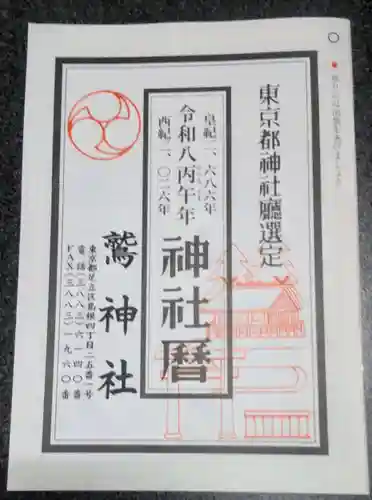 東京都神社廳選定
皇紀二、六八六年
令和八丙午年
西紀二、〇二六年
神社暦
鷲神社
東京都足立区島根四丁目二五番一号
電話(三八八三)六一四〇番
FAX(三八八三)一九六〇番